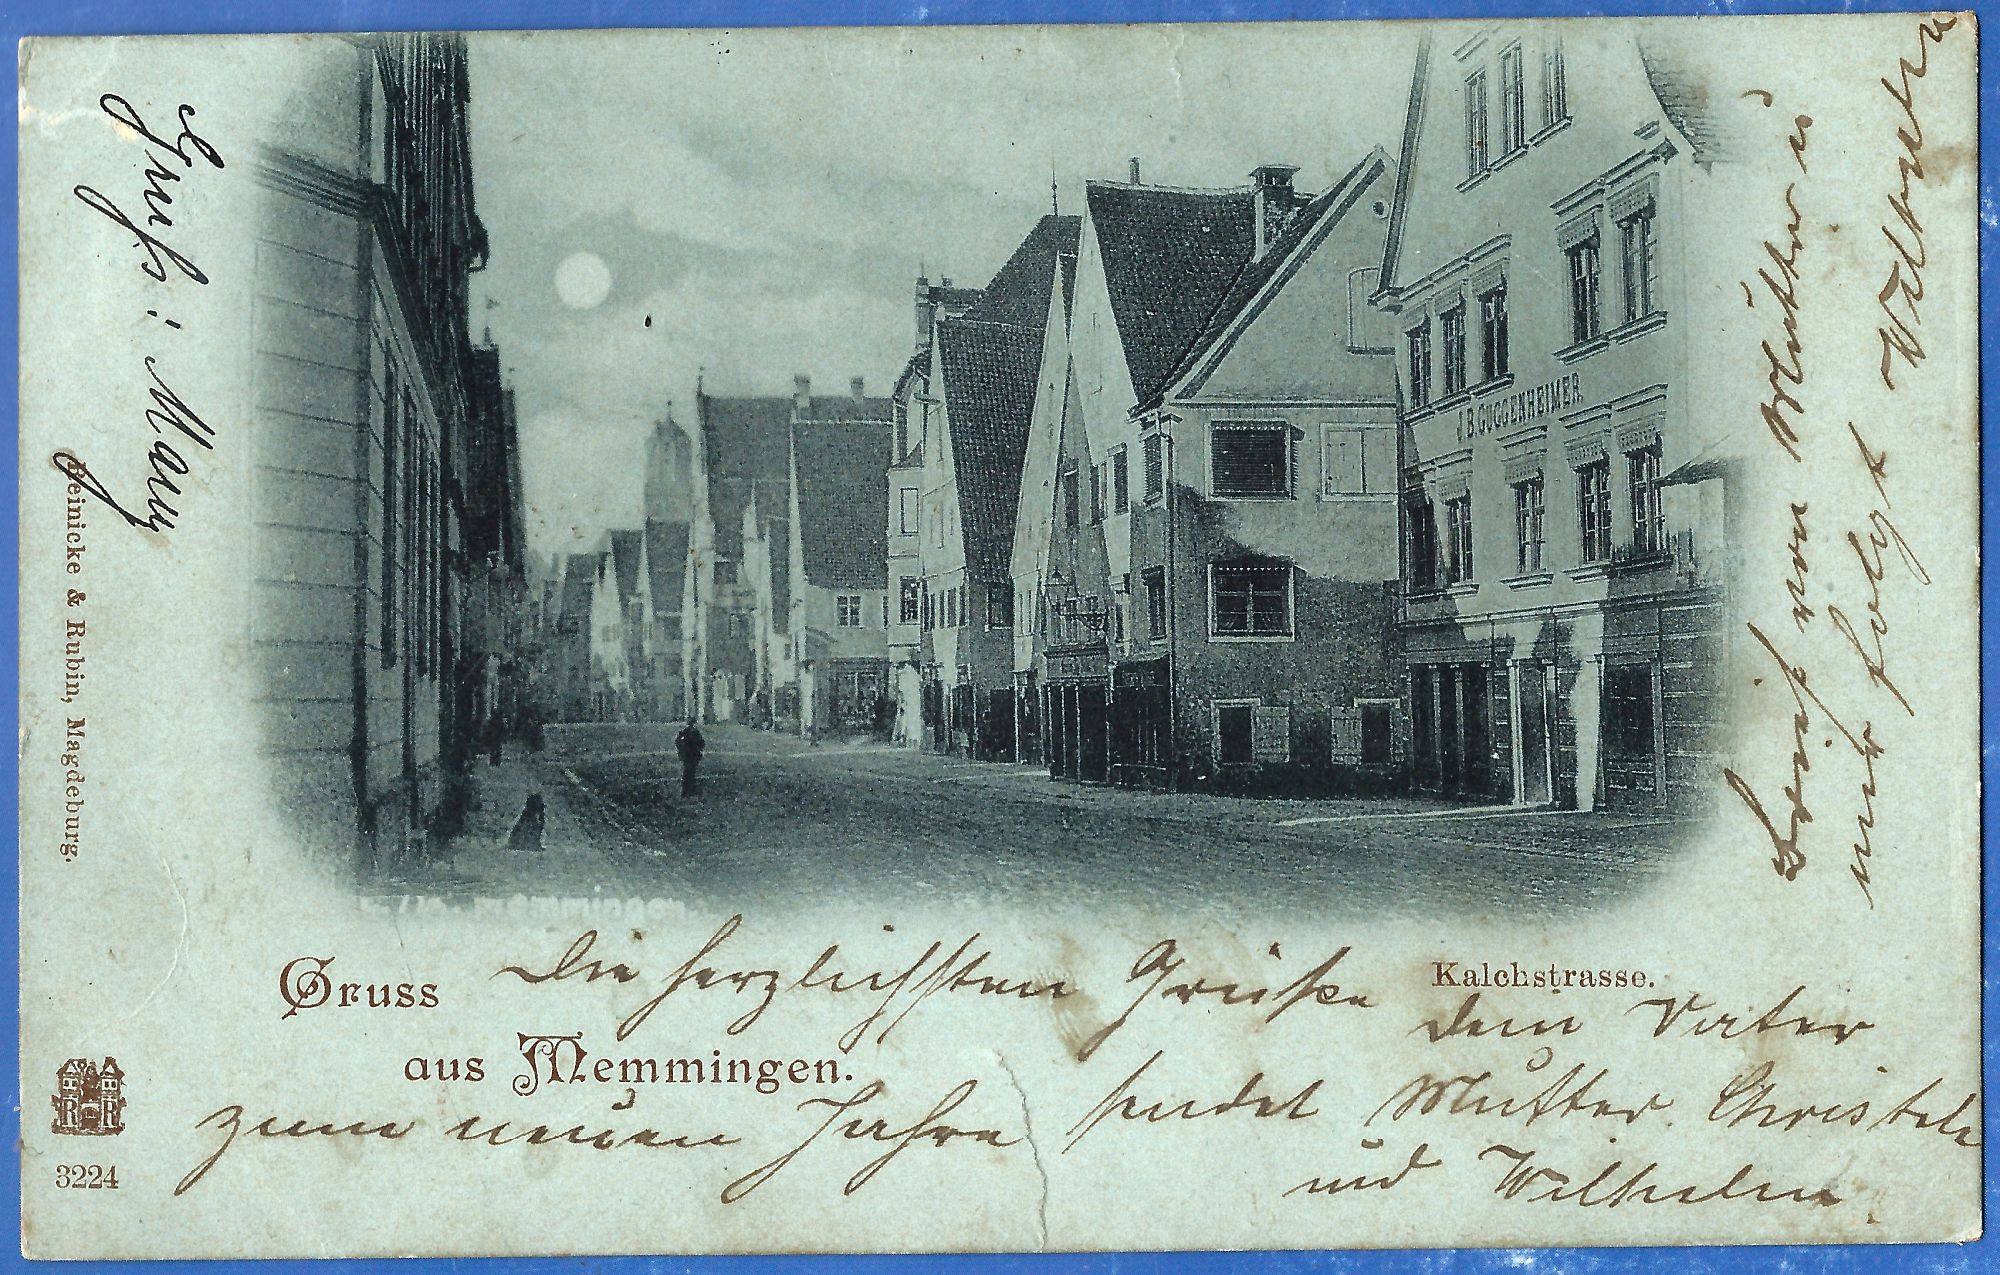 Gruß: Many
Reinicke & Rubin, Magdeburg.
J.B. GUGGENHEIMER.
Memmingen
Gruss
aus Memmingen.
Kalchstrasse.
R R
3224
Die herzlichsten Grüße
zum neuen Jahre sendet
dein Vater
Mutter. Christele
und Wilhelm.
Brief von Mutter u
mir folgt Wilhelm